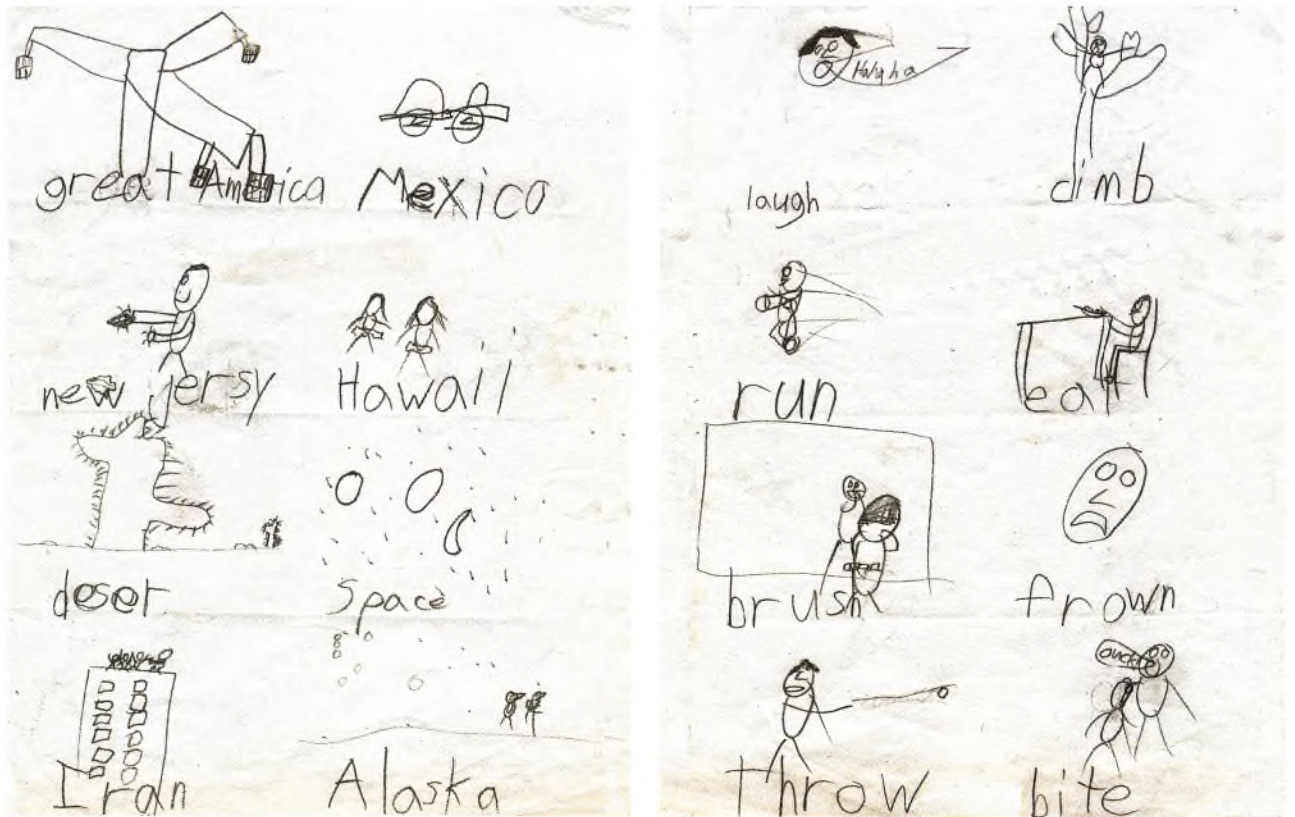 great America
Mexico
new jersy
Hawaii
deser
Space
Iran
Alaska
laugh
climb
run
eat
brush
frown
throw
bite